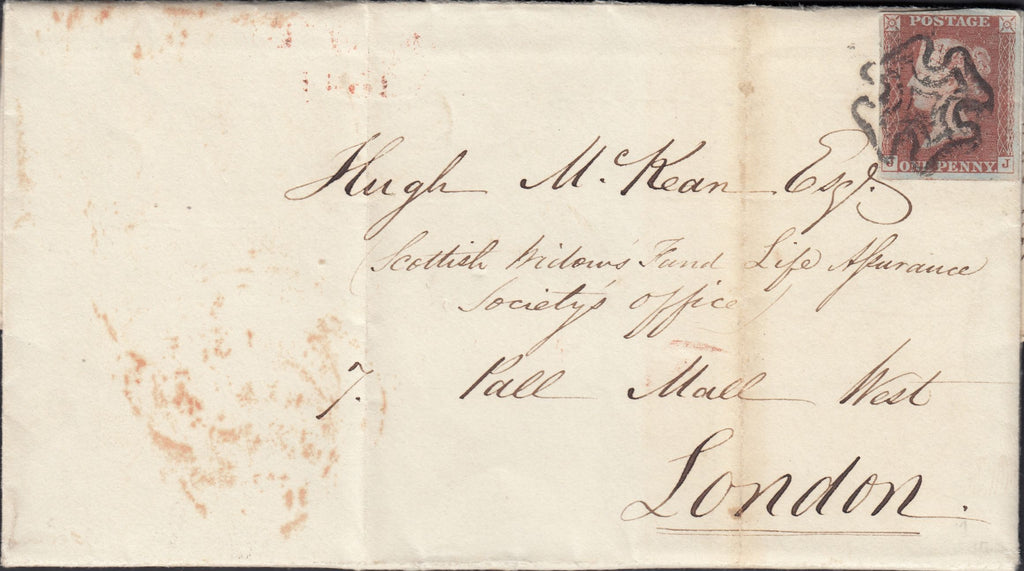 POSTAGE
ONE PENNY
J
Hugh McKean Esqr.
(Scottish Widows' Fund Life Assurance
Society's office)
7. Pall Mall West
London.